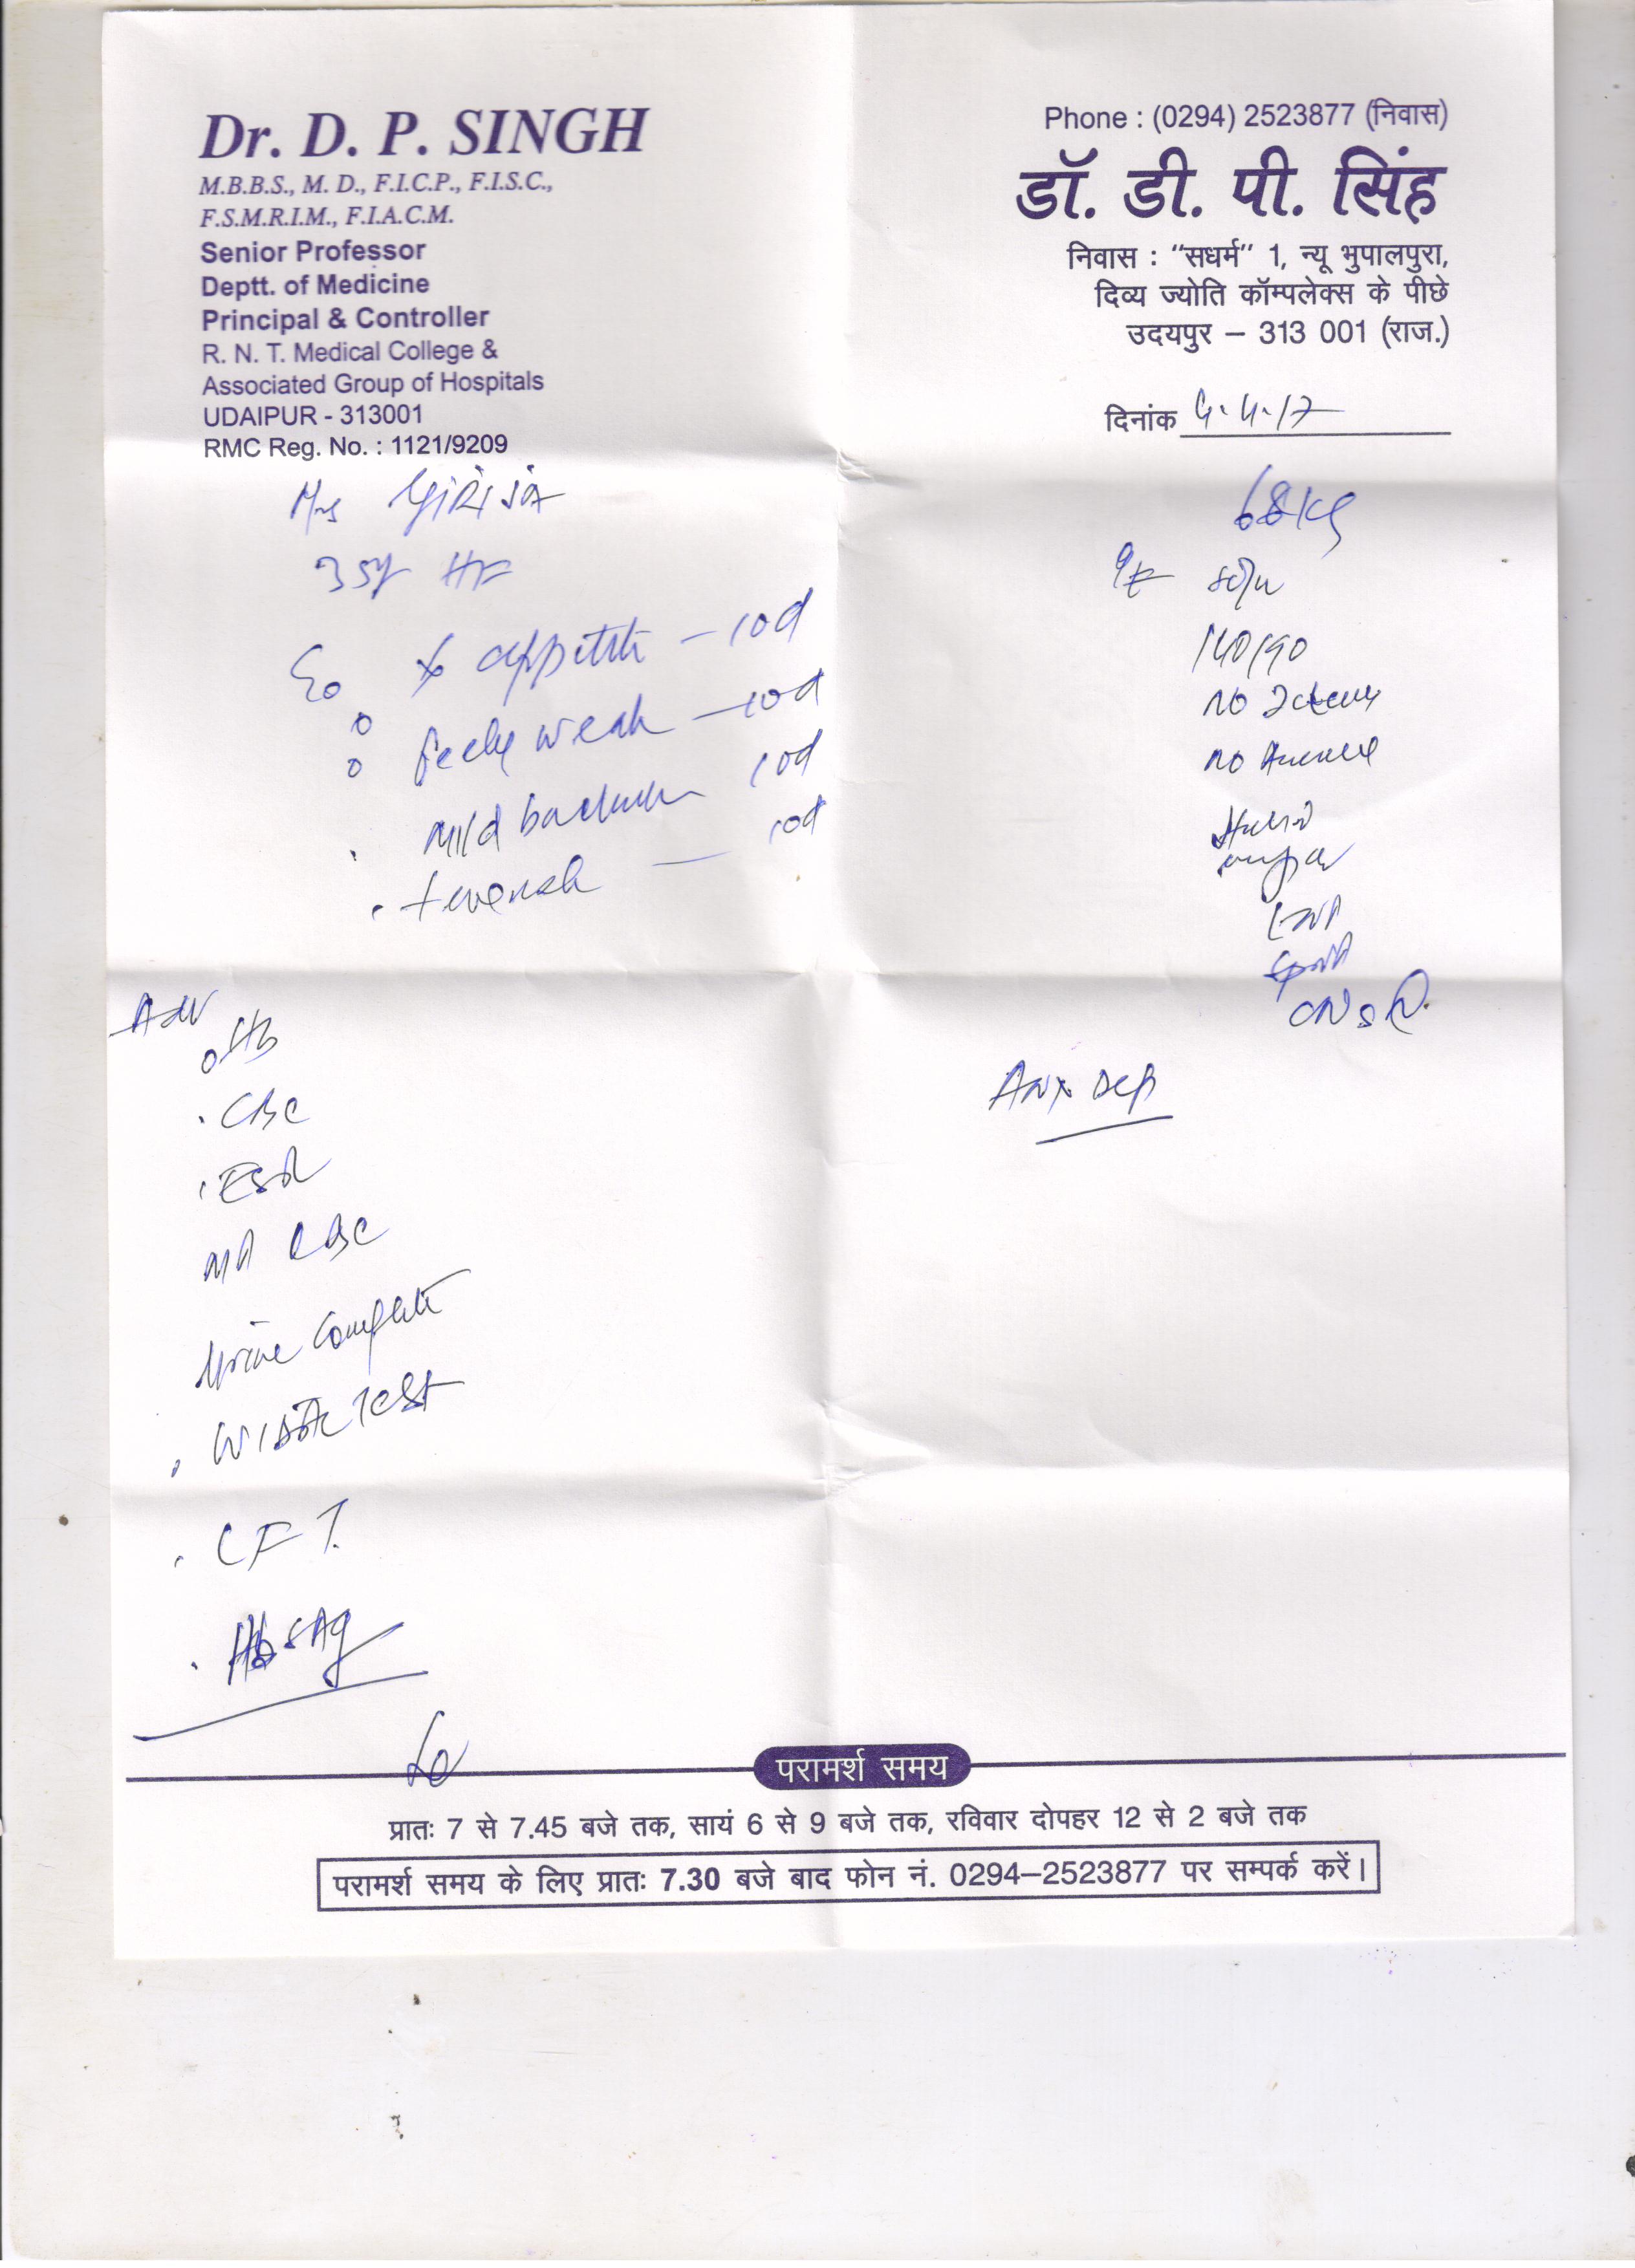 Dr. D. P. SINGH
M.B.B.S., M. D., F.I.C.P., F.I.S.C.,
F.S.M.R.I.M., F.I.A.C.M.
Senior Professor
Deptt. of Medicine
Principal & Controller
R. N. T. Medical College &
Associated Group of Hospitals
UDAIPUR - 313001
RMC Reg. No. : 1121/9209
Phone : (0294) 2523877 (निवास)
डॉ. डी. पी. सिंह
निवास : “सधर्म” 1, न्यू भुपालपुरा,
दिव्य ज्योति कॉम्पलेक्स के पीछे
उदयपुर – 313 001 (राज.)
दिनांक 4.4.17
Mrs GIRIJA
35y HF
appetite - 10d
feels weak - 10d
mild 10d
10d
68Kg
140/90
No
No
CNS
Anx Dep
Adv
Hb
CBC
ESR
CBC
Urine Complete
Widal Test
LFT.
HbsAg
परामर्श समय
प्रातः 7 से 7.45 बजे तक, सायं 6 से 9 बजे तक, रविवार दोपहर 12 से 2 बजे तक
परामर्श समय के लिए प्रातः 7.30 बजे बाद फोन नं. 0294–2523877 पर सम्पर्क करें।